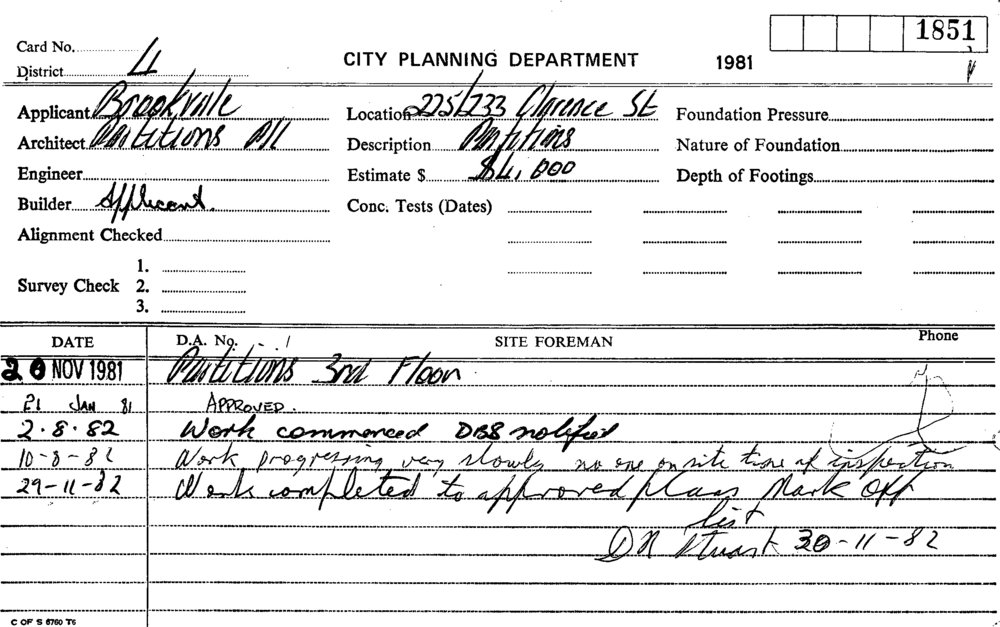 1851
Card No. CITY PLANNING DEPARTMENT 1981
District 4
Applicant Brookvile Location 225/233 Clarence St Foundation Pressure
Architect Partitions P/L Description Partitions Nature of Foundation
Engineer Estimate $ $4,000 Depth of Footings
Builder Applicant. Conc. Tests (Dates)
Alignment Checked
1.
Survey Check 2.
3.
DATE D.A. No. SITE FOREMAN Phone
20 NOV 1981 Partitions 3rd Floor
21 JAN 81 APPROVED.
2.8.82 Work commenced DBS notified
10-8-82 Work progressing very slowly no one on site time of inspection
29-11-82 Work completed to approved plans Mark Off
list
D R Stuart 30-11-82
C OF S 6760 T6